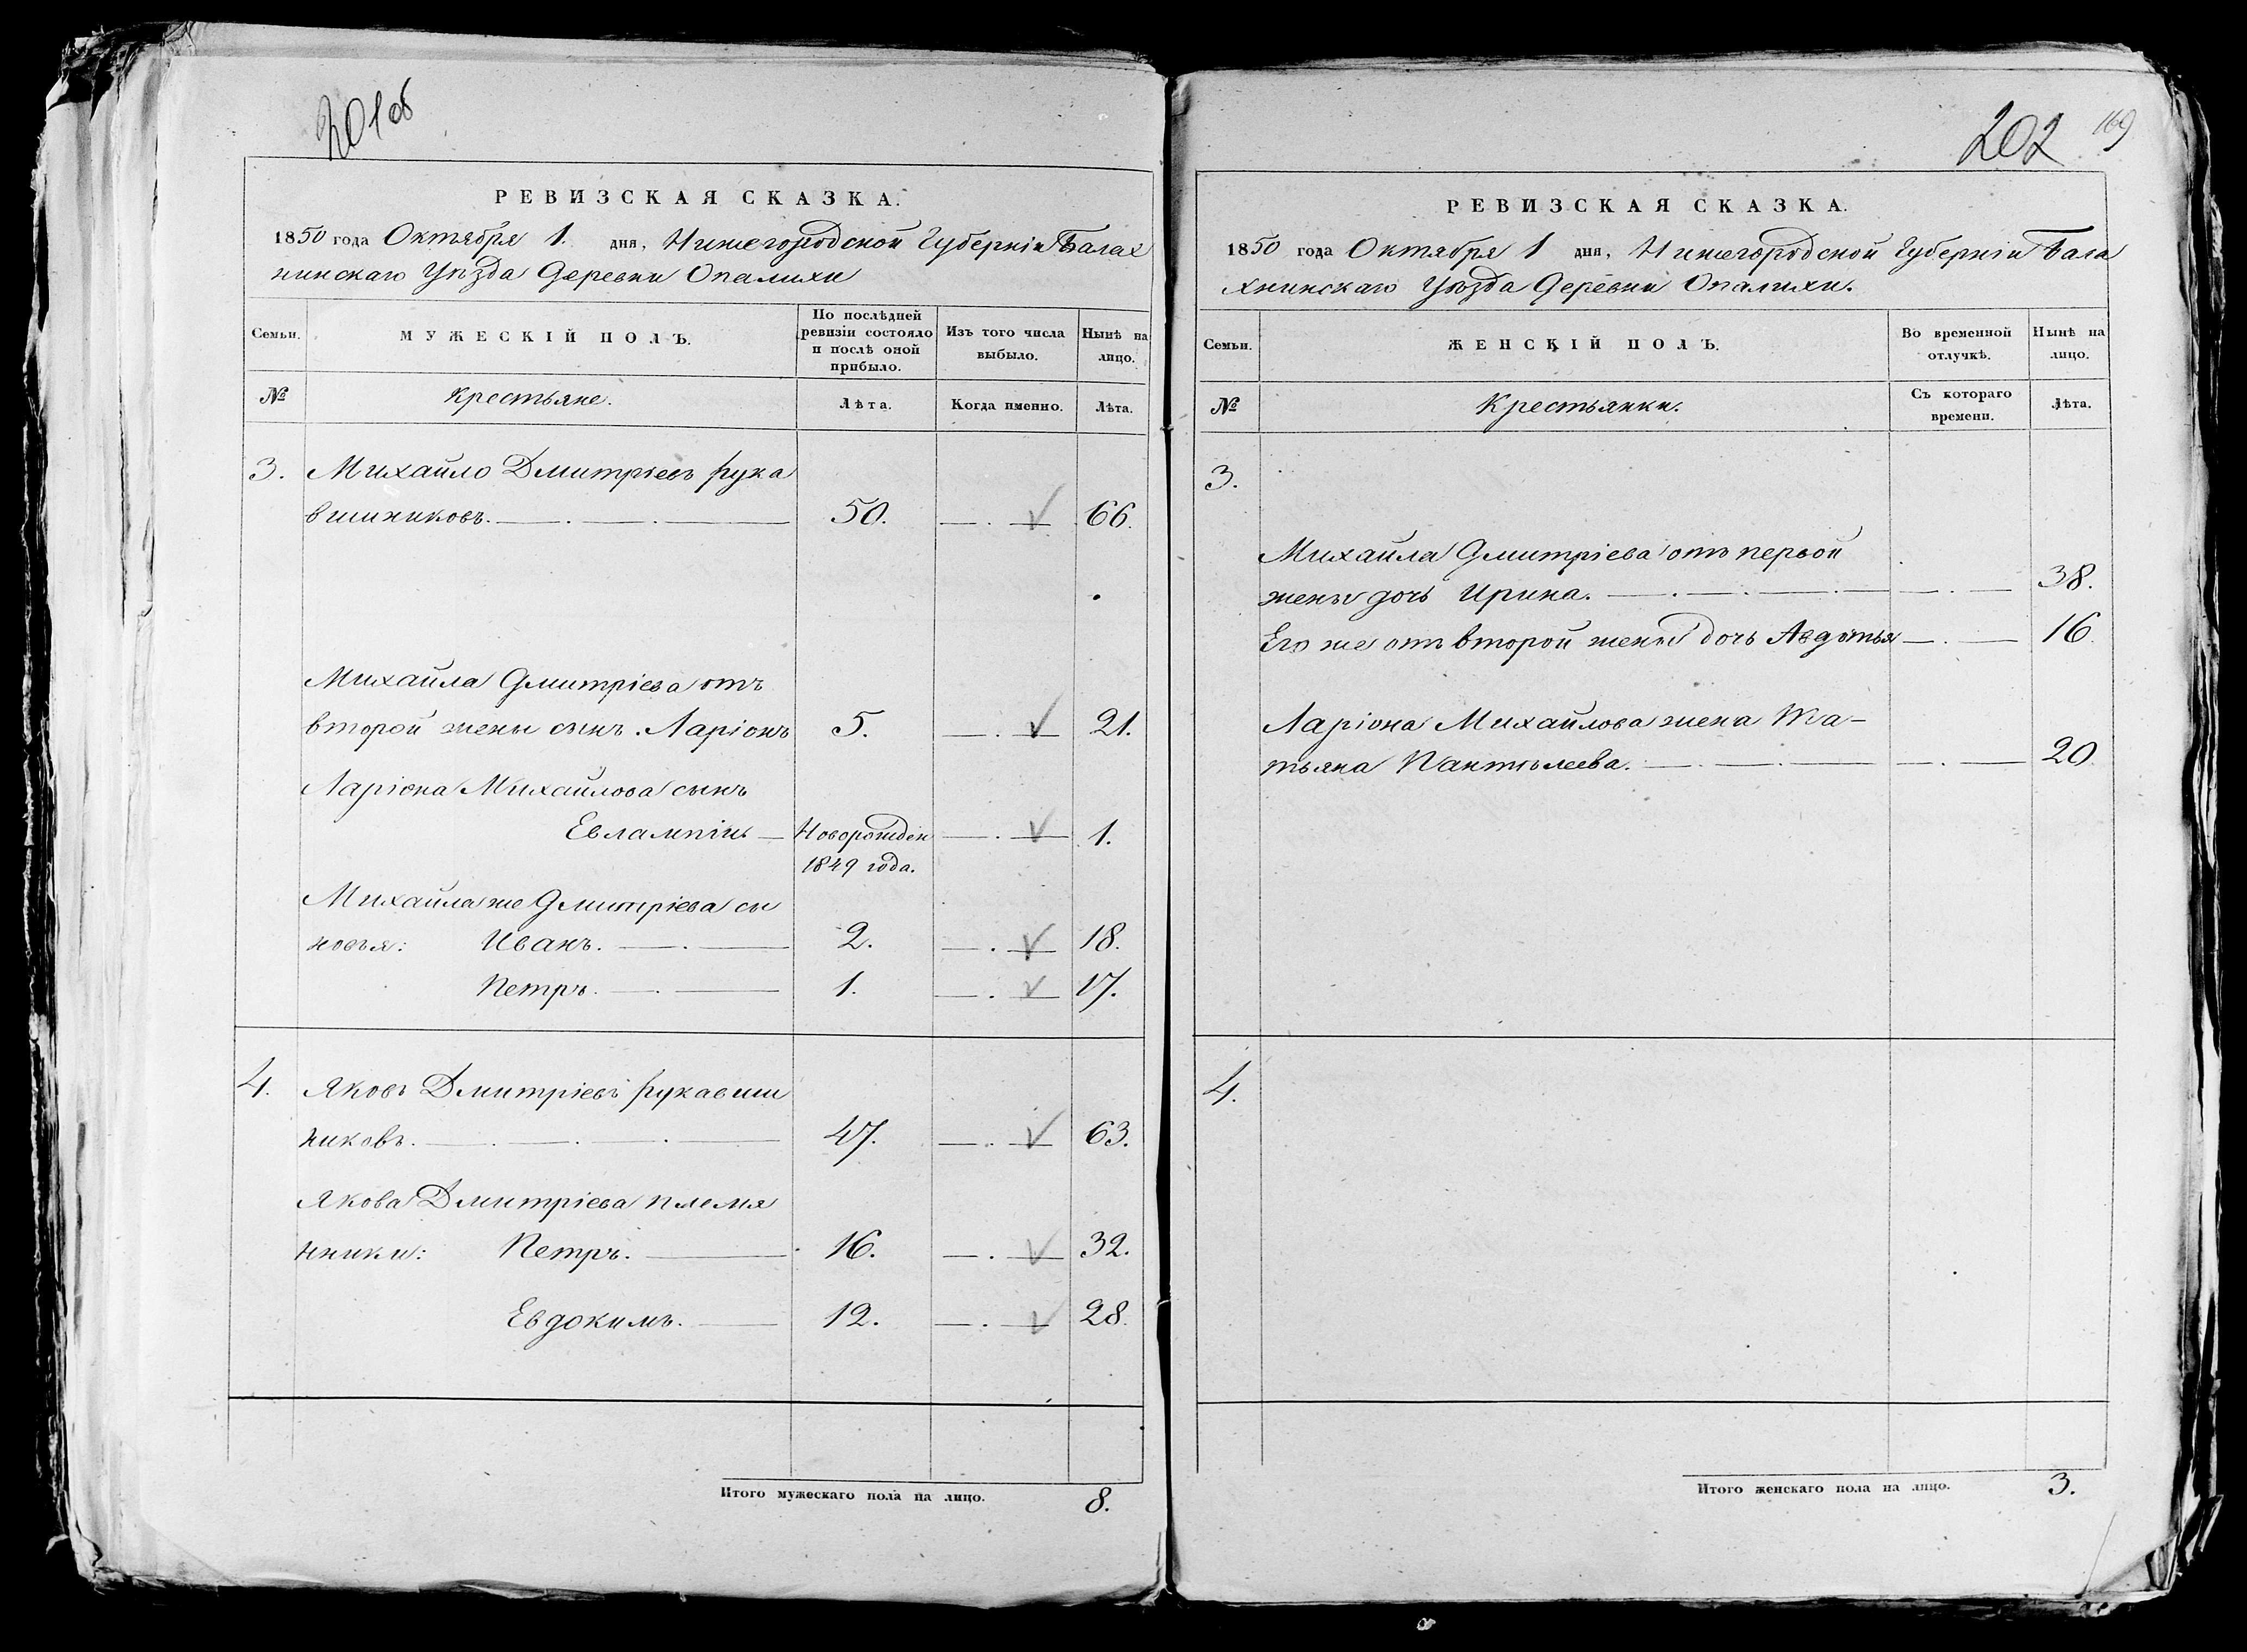 201об
РЕВИЗСКАЯ СКАЗКА.
1850 года Октября 1. дня, Нижегородской Губерніи Балах
нинскаго Уѣзда Деревни Опалихи
Семьи.
МУЖЕСКІЙ ПОЛЪ.
По послѣдней
ревизіи состояло
и послѣ оной
прибыло.
Изъ того числа
выбыло.
Нынѣ на
лицо.
№
Крестьяне.
Лѣта.
Когда именно.
Лѣта.
3. Михайло Дмитріевъ рука
вишниковъ. 50. 66.
Михайла Дмитріева отъ
второй жены сынъ. Ларіонъ 5. 21.
Ларіона Михайлова сынъ
Евлампій Новорожден 1.
1849 года.
Михайла же Дмитріева сы
новья: Иванъ. 2. 18.
Петръ. 1. 17.
4. Яковъ Дмитріевъ рукавиш
никовъ. 47. 63.
Якова Дмитріева племя
нники: Петръ. 16. 32.
Евдокимъ. 12. 28.
Итого мужескаго пола на лицо. 8.
202 169
РЕВИЗСКАЯ СКАЗКА.
1850 года Октября 1 дня, Нижегородской Губерніи Бала
хнинскаго Уѣзда Деревни Опалихи.
Семьи.
ЖЕНСКІЙ ПОЛЪ.
Во временной
отлучкѣ.
Нынѣ на
лицо.
№
Крестьянки.
Съ котораго
времени.
Лѣта.
3.
Михайла Дмитріева отъ первой
жены дочь Ирина. 38.
Его же отъ второй жены дочь Авдотья 16.
Ларіона Михайлова жена Та-
тьяна Пантѣлеева. 20
4.
Итого женскаго пола на лицо. 3.